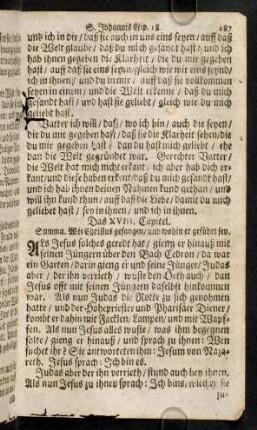 S. Johannis Ev. 18. 287
und ich in dir/ daß sie auch in uns eins seyen/ auff daß
die Welt glaube/ daß du mich gesandt hast/ und ich
hab ihnen gegeben die Klarheit/ die du mir gegeben
hast/ auff daß sie eins seyen/ gleich wie wir eins seynd/
ich in ihnen/ und du in mir/ auff daß sie vollkommen
seyen in einem/ und die Welt erkenne/ daß du mich
gesandt hast/ und hast sie geliebt/ gleich wie du mich
geliebt hast.
Vatter ich will/ daß/ wo ich bin/ auch die seyen/
die du mir gegeben hast/ daß sie die Klarheit sehen/ die
du mir gegeben hast/ dann du hast mich geliebt/ ehe
dan die Welt gegründet war. Gerechter Vatter/
die Welt hat mich nicht erkant/ ich aber hab dich er-
kant/ und diese haben erkant/ daß du mich gesandt hast/
und ich hab ihnen deinen Nahmen kund gethan/ und
will ihn kund thun/ auff daß die Liebe/ damit du mich
geliebet hast/ sey in ihnen/ und ich in ihnen.
Das XVIII. Capitel.
Summa. Wie Christus gefangen/ und wohin er geführt sey.
Als Jesus solches geredt hat/ gieng er hinauß mit
seinen Jüngern über den Bach Cedron/ da war
ein Garten/ darin gieng er und seine Jünger/ Judas
aber/ der ihn verrieth/ wuste den Orth auch/ dan
Jesus offt mit seinen Jüngern daselbst hinkommen
war. Als nun Judas die Rotte zu sich genohmen
hatte/ und der Hohepriester und Pharisäer Diener/
kombt er dahin mit Fackeln/ Lampen/ und mit Wapf-
fen. Als nun Jesus alles wuste/ was ihm begegnen
solte/ gieng er hinauß/ und sprach zu ihnen: Wen
suchet ihr? Sie antworteten ihm: Jesum von Naza-
reth. Jesus sprach: Ich bin es.
Judas aber der ihn verrieth/ stund auch bey ihnen.
Als nun Jesus zu ihnen sprach: Ich bins/ wichen sie
zu-